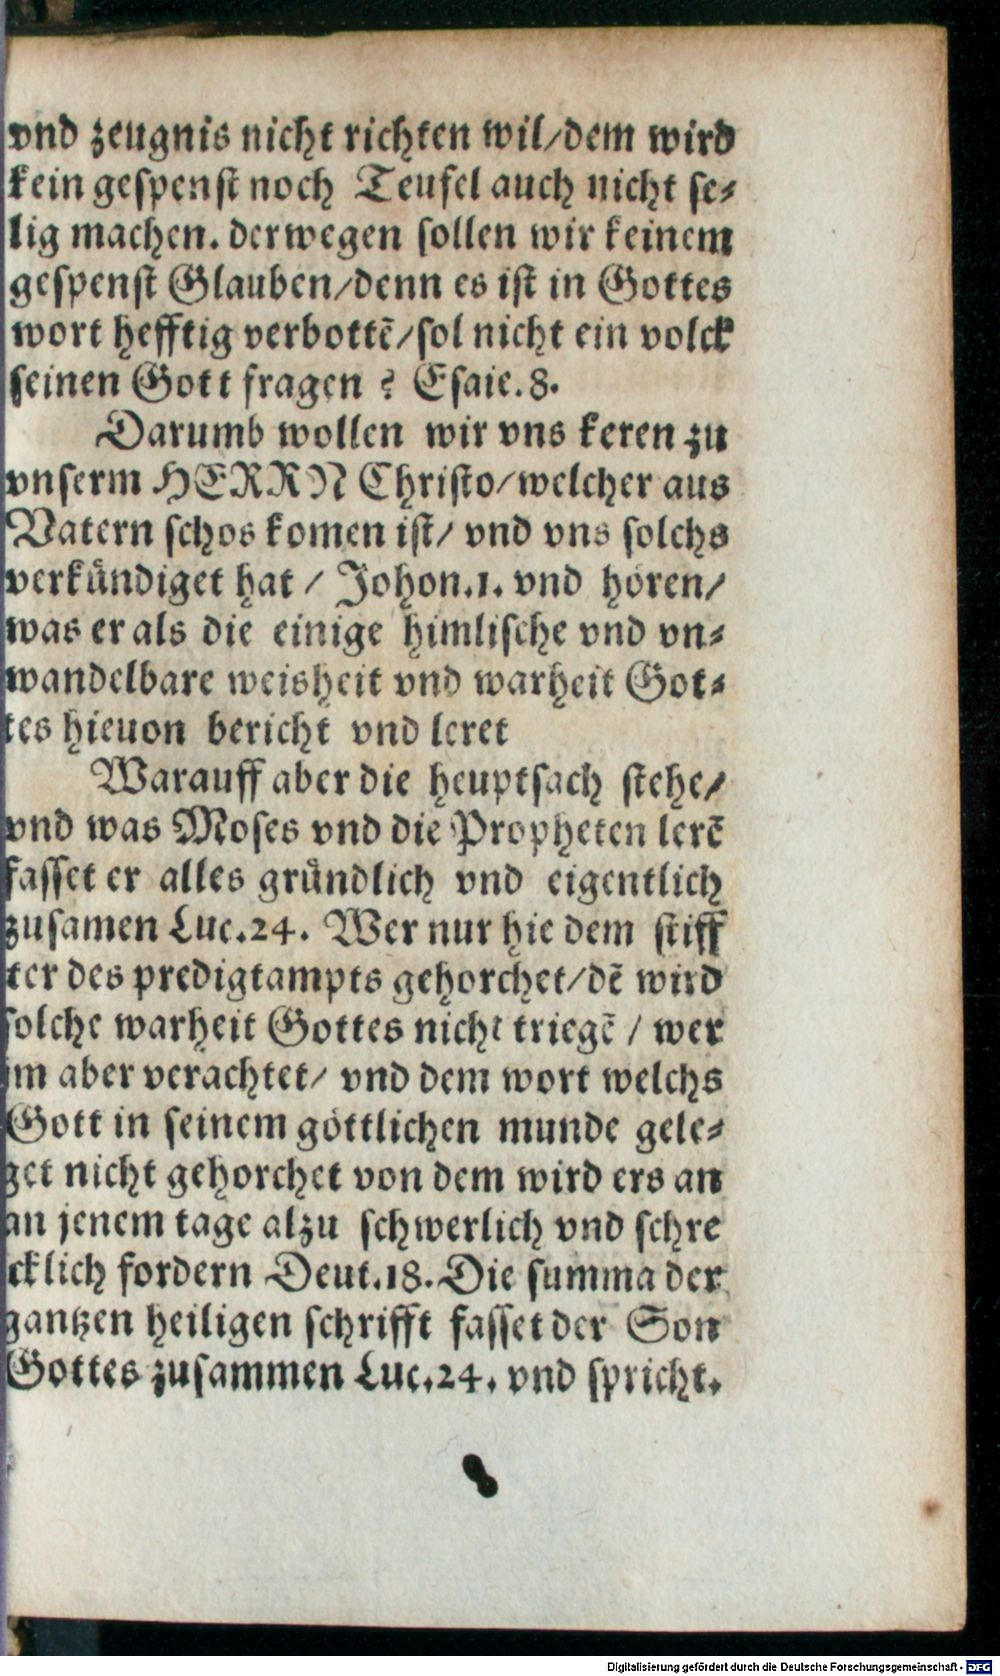 vnd zeugnis nicht richten wil/dem wird
kein gespenst noch Teufel auch nicht se⸗
lig machen. derwegen sollen wir keinem
gespenst Glauben/denn es ist in Gottes
wort hefftig verbottē/sol nicht ein volck
seinen Gott fragen ? Esaie.8.
Darumb wollen wir vns keren zu
vnserm HERRN Christo/welcher aus
Vatern schos komen ist/ vnd vns solchs
verkůndiget hat / Johon.1. vnd horen/
was er als die einige himlische vnd vn⸗
wandelbare weisheit vnd warheit Got⸗
tes hieuon bericht vnd leret
Warauff aber die heuptsach stehe/
vnd was Moses vnd die Propheten lerē
fasset er alles grůndlich vnd eigentlich
zusamen Luc.24. Wer nur hie dem stiff
ter des predigtampts gehorchet/dē wird
solche warheit Gottes nicht triegē / wer
im aber verachtet/ vnd dem wort welchs
Gott in seinem gottlichen munde gele⸗
get nicht gehorchet von dem wird ers an
an jenem tage alzu schwerlich vnd schre
cklich fordern Deut.18. Die summa der
gantzen heiligen schrifft fasset der Son
Gottes zusammen Luc.24. vnd spricht.
Digitalisierung gefördert durch die Deutsche Forschungsgemeinschaft - DFG